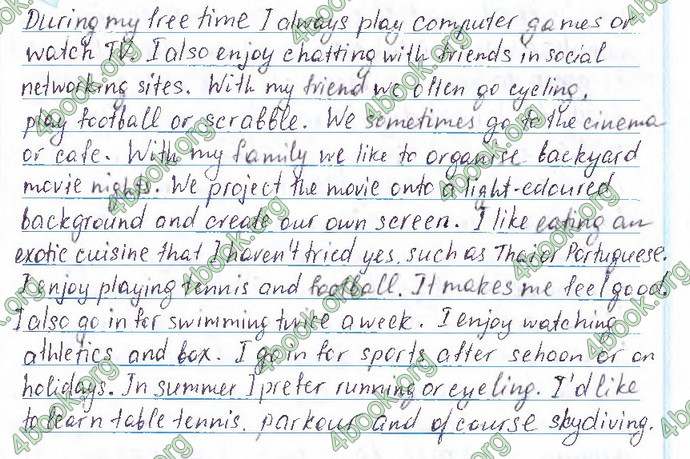 During my free time I always play computer games or
watch TV. I also enjoy chatting with friends in social
networking sites. With my friend we often go cycling,
play football or scrabble. We sometimes go to the cinema
or cafe. With my family we like to organise backyard
movie nights. We project the movie onto a light-coloured
background and create our own screen. I like eating an
exotic cuisine that I haven't tried yes, such as Thai or Portuguese.
I enjoy playing tennis and football. It makes me feel good.
I also go in for swimming twice a week. I enjoy watching
athletics and box. I go in for sports after sehoon or on
holidays. In summer I prefer running or cycling. I'd like
to learn table tennis, parkour and of course skydiving.
4book.org